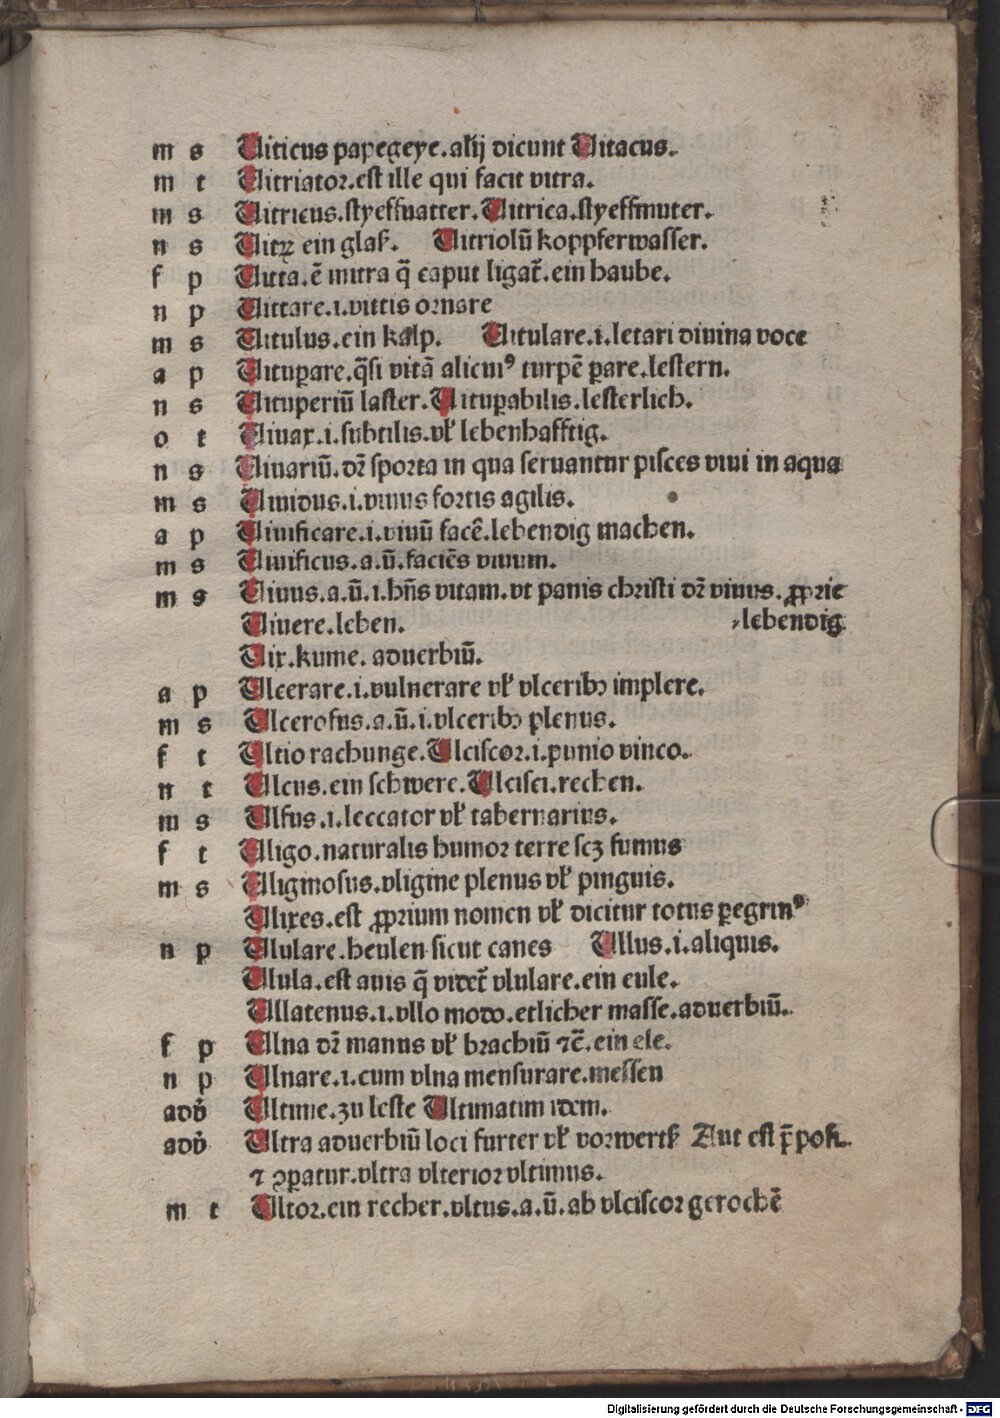 m s Uiticus papegeye.alij dicunt Uitacus.
m t Uitriator.est ille qui facit vitra.
m s Uitricus.styeffuatter.Uitrica.styeffmuter.
n s Uitrꝝ ein glaß. Uitriolū koppferwasser.
f p Uitta.ē mitra q̄ caput ligat̄.ein haube.
n p Uittare.i.vittis ornare
m s Uitulus.ein kalp. Uitulare.i.letari diuina voce
a p Uituꝑare.q̄si vitā alicuiꝰ turpē ꝑare.lestern.
n s Uituperiū laster.Uituꝑabilis.lesterlich.
o t Uiuax.i.subtilis.vł lebenhafftig.
n s Uiuariū.dr̄ sporta in qua seruantur pisces viui in aqua
m s Uiuidus.i.viuus fortis agilis.
a p Uiuificare.i.viuū facē.lebendig machen.
m s Uiuificus.a.ū.faciēs viuum.
m s Uiuus.a.ū.i.hn̄s vitam.vt panis christi dr̄ viuus.ꝓprie
Uiuere.leben. lebendig
Uix.kume. aduerbiū.
a p Ulcerare.i.vulnerare vł vlceribꝫ implere.
m s Ulcerosus.a.ū.i.vlceribꝫ plenus.
f t Ultio rachunge.Ulciscor.i.punio vinco.
n t Ulcus.ein schwere.Ulcisci.rechen.
m s Ulfus.i.leccator vł tabernarius.
f t Uligo.naturalis humor terre scꝫ fumus
m s Uliginosus.vligine plenus vł pinguis.
Ulixes.est ꝓprium nomen vł dicitur totus ꝑegrinꝰ
n p Ululare.heulen sicut canes Ullus.i.aliquis.
Ulula.est auis q̄ videt̄ vlulare.ein eule.
Ullatenus.i.vllo modo.etlicher masse.aduerbiū.
f p Ulna dr̄ manus vł brachiū ⁊c̄.ein ele.
n p Ulnare.i.cum vlna mensurare.messen
adv̄ Ultime.zu leste Ultimatim idem.
adv̄ Ultra aduerbiū loci furter vł vorwertß Aut est p̄poſi.
⁊ ꝯꝑatur.vltra vlterior vltimus.
m t Ultor.ein recher.vltus.a.ū.ab vlciscor gerochē
Digitalisierung gefördert durch die Deutsche Forschungsgemeinschaft - DFG